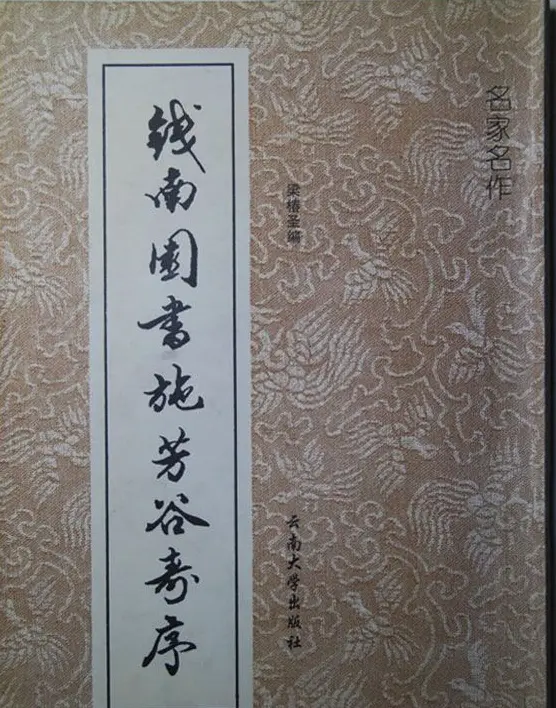 名家名作
梁椿圣编
钱南園書施芳谷壽序
云南大学出版社